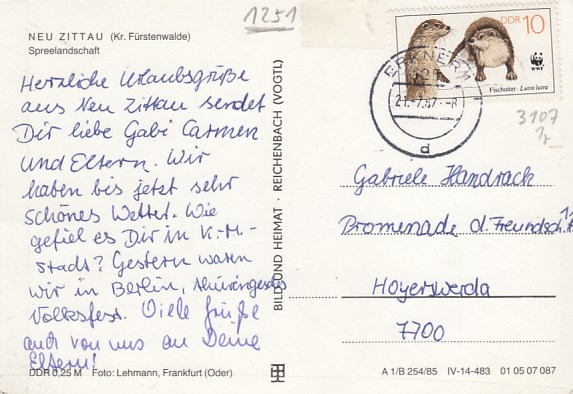 1251
NEU ZITTAU (Kr. Fürstenwalde)
Spreelandschaft
Herzliche Urlaubsgrüße
aus Neu Zittau sendet
Dir liebe Gabi Carmen
und Eltern. Wir
haben bis jetzt sehr
schönes Wetter. Wie
gefiel es Dir in K.-M.-
stadt? Gestern waren
wir in Berlin,
Volksfest. Viele Grüße
auch von uns an Deine
Eltern!
DDR 0,25 M Foto: Lehmann, Frankfurt (Oder)
BILD UND HEIMAT · REICHENBACH (VOGTL)
DDR 10
WWF
Fischotter · Lutra lutra
ERKNER 1
125
21.-7.87.
d
3107
Gabriele Handrack
Promenade d. Freundsch.
Hoyerswerda
7700
A 1/B 254/85 IV-14-483 01 05 07 087